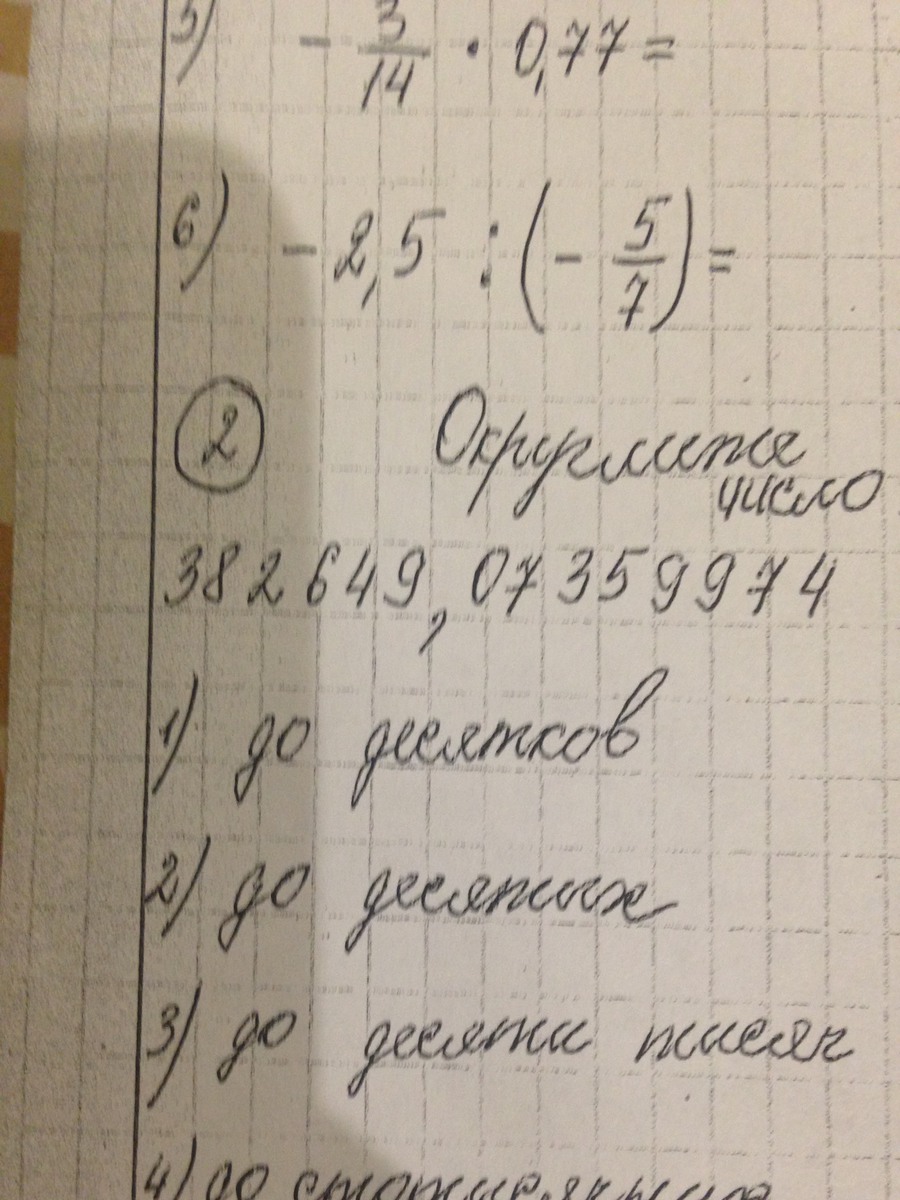 5) - 3/14 · 0,77 =
6) - 2,5 : (- 5/7) =
2 Округлите
число
382649,07359974
1) до десятков
2) до десятых
3) до десяти тысяч
4) до